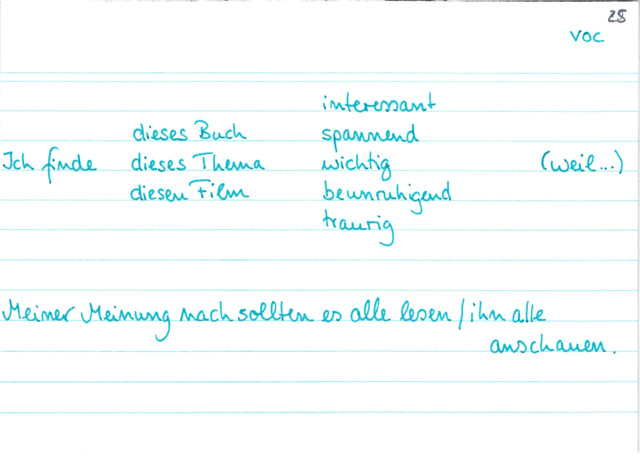 28
VOC
interessant
dieses Buch spannend
Ich finde dieses Thema wichtig (weil...)
diesen Film beunruhigend
traurig
Meiner Meinung nach sollten es alle lesen / ihn alle
anschauen.